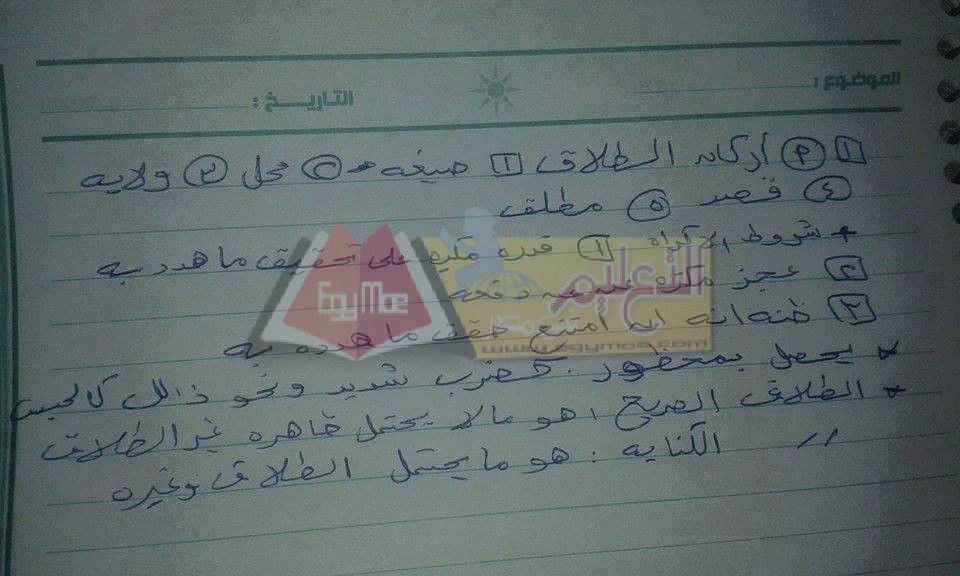 الموضوع :
التاريخ :
1 (P) أركان الطلاق 1 صيغه ٢ محل ٣ ولايه
٤ قصد ٥ مطلق
* شروط الاكراه 1 قدرة مكره على تحقيق ما هدد به
٢ عجز مكره عن دفعه
٣ ظنه انه ان امتنع حقق ما هدده به
* يحصل بمحظور . كضرب شديد ونحو ذالك كالحبس
* الطلاق الصريح : هو مالا يحتمل ظاهره غير الطلاق
// الكنايه : هو ما يحتمل الطلاق وغيره
EgyMoe
التعليم
www.egymoe.com